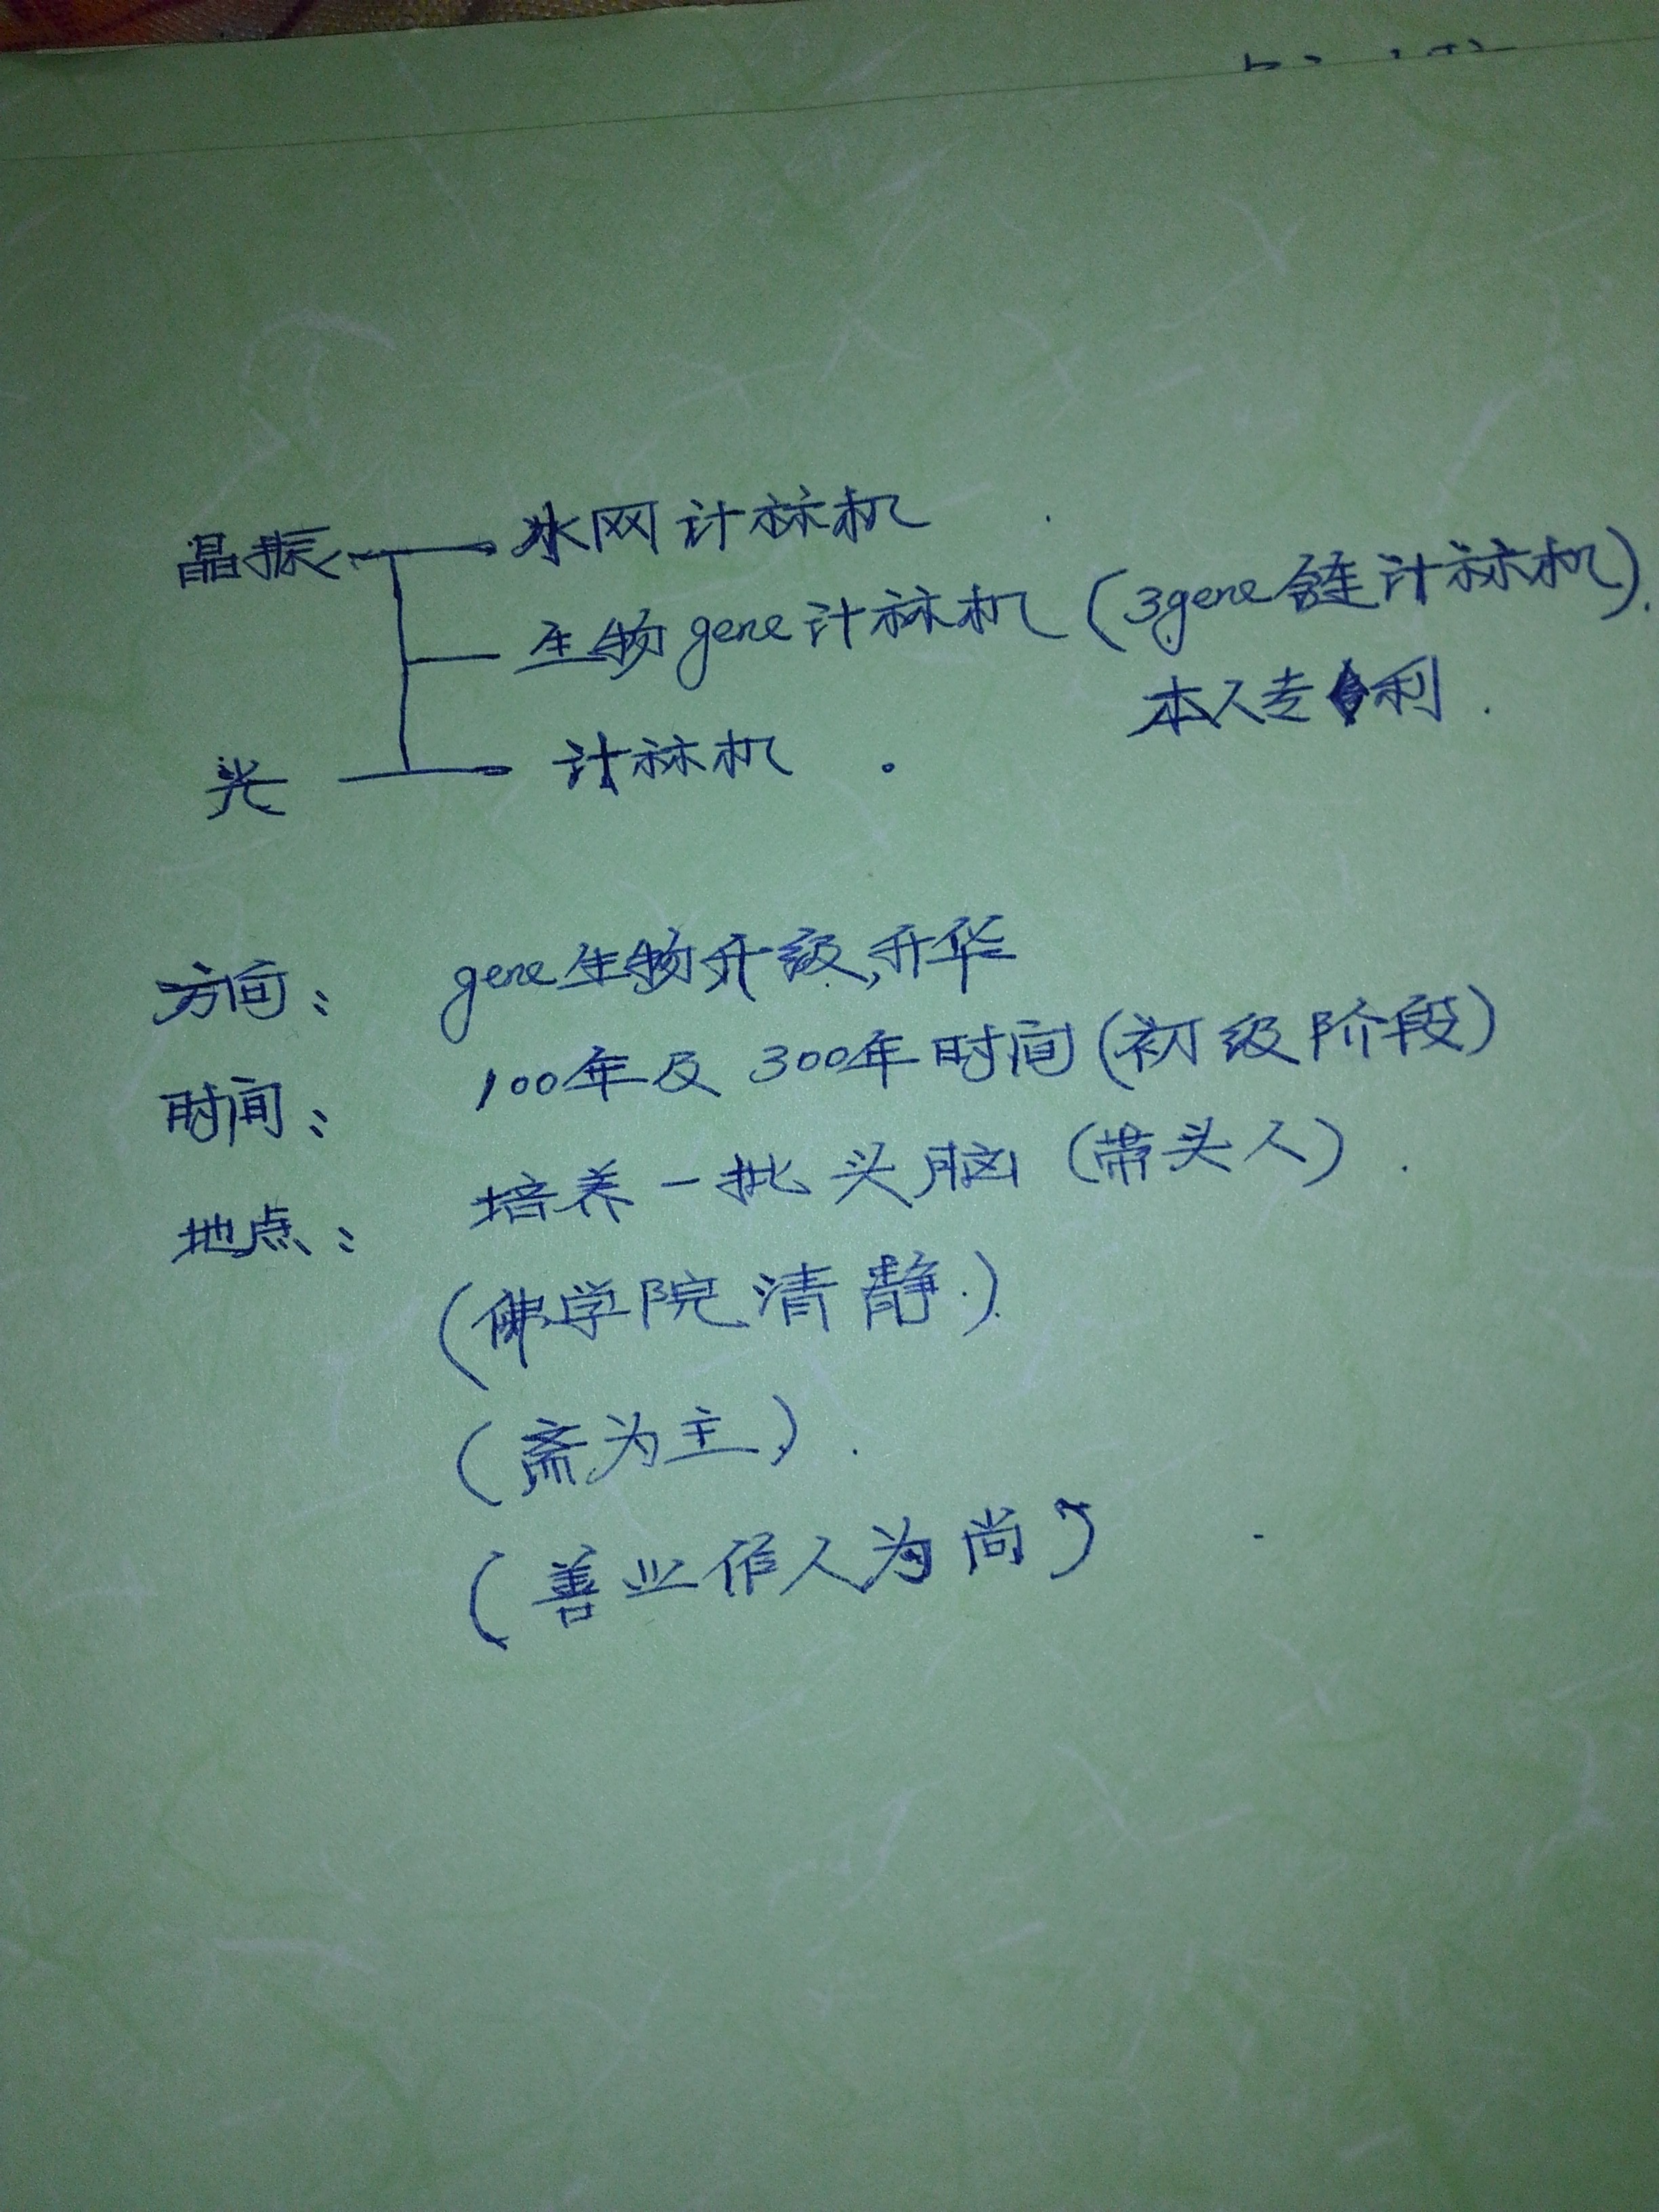 晶振 — 水网计祘机
生物gene计祘机 (3gene链计祘机).
本人专利.
光 — 计祘机.
方向: gene生物升级,升华
时间: 100年及300年时间(初级阶段)
地点: 培养一批头脑(带头人).
(佛学院清静.).
(斋为主).
(善业作人为尚)